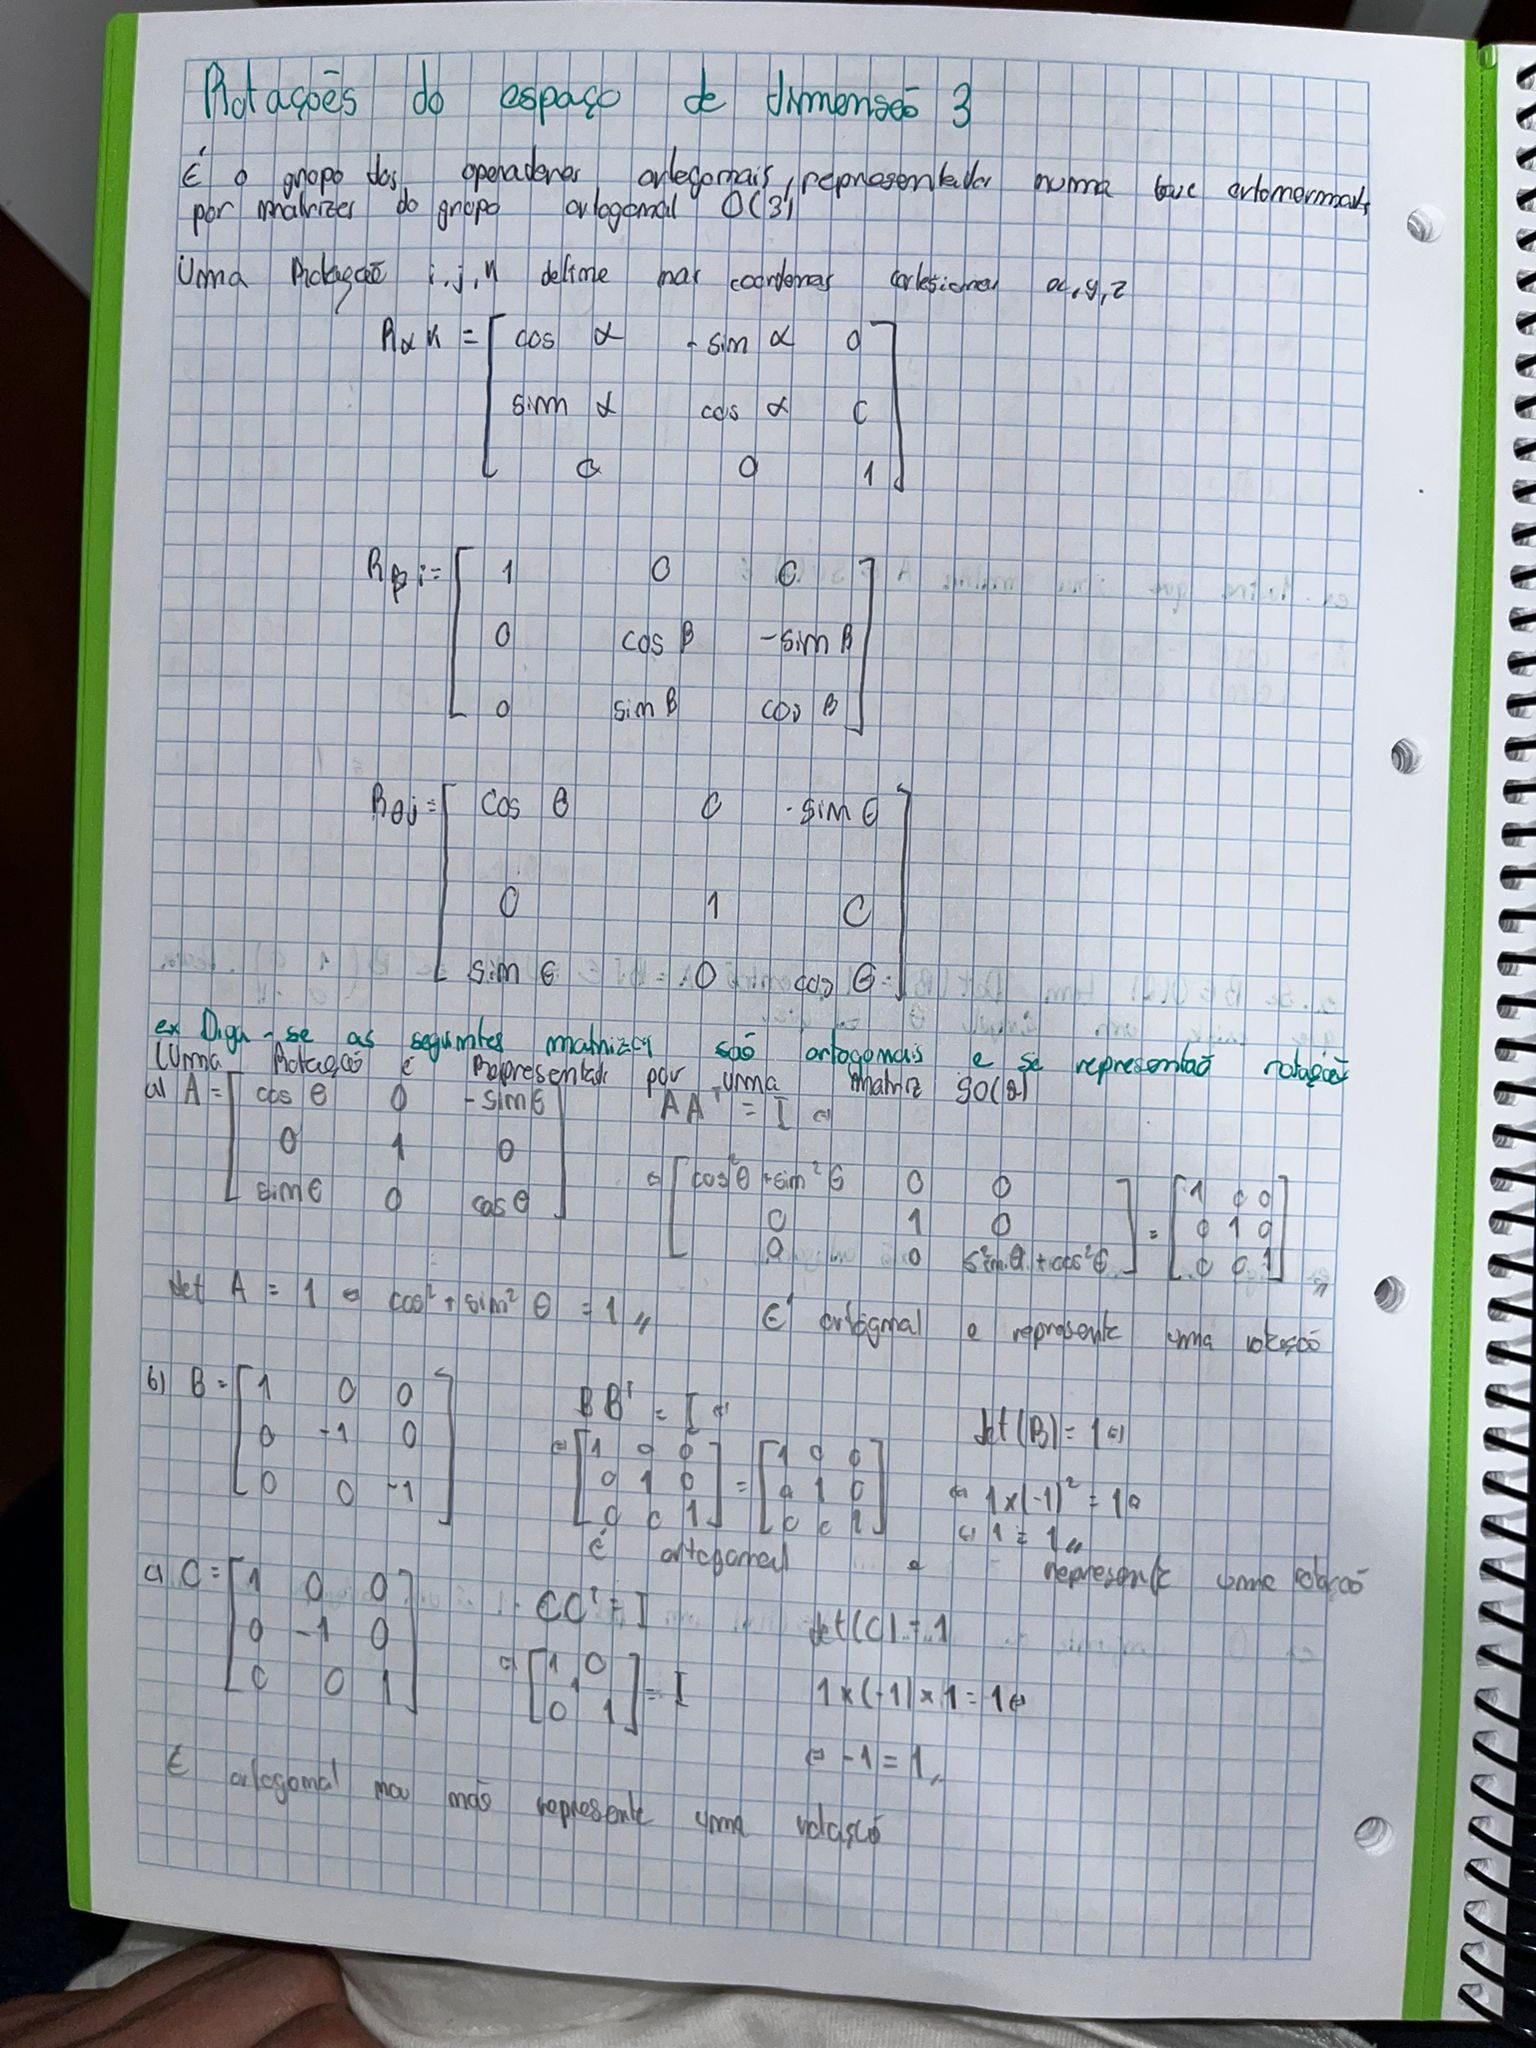 Rotações do espaço de dimensão 3
É o grupo dos operadores ortogonais, representados numa base ortonormada
por matrizes do grupo ortogonal O(3)
Uma Rotação i, j, k define nas coordenas cartesianas x, y, z
Rα k = [ cos α - sin α 0
sin α cos α 0
0 0 1 ]
Rβ i = [ 1 0 0
0 cos β - sin β
0 sin β cos β ]
Rθ j = [ cos θ 0 - sin θ
0 1 0
sin θ 0 cos θ ]
ex Diga-se as seguintes matrizes são ortogonais e se representão rotações
(Uma Rotação é Representada por uma matriz SO(2)
a) A = [ cos θ 0 - sin θ
0 1 0
sin θ 0 cos θ ]
AAᵀ = I ⇔
⇔ [ cos²θ + sin²θ 0 0
0 1 0
0 0 sin²θ + cos²θ ] = [ 1 0 0
0 1 0
0 0 1 ] //
det A = 1 ⇔ cos² + sin² θ = 1 // É ortogonal e representa uma rotação
b) B = [ 1 0 0
0 -1 0
0 0 -1 ]
BBᵀ = I ⇔
⇔ [ 1 0 0
0 1 0
0 0 1 ] = [ 1 0 0
0 1 0
0 0 1 ]
det(B) = 1 ⇔
⇔ 1×(-1)² = 1 ⇔
⇔ 1 = 1 //
É ortogonal e representa uma rotação
c) C = [ 1 0 0
0 -1 0
0 0 1 ]
CCᵀ = I
⇔ [ 1 0
1
0 1 ] = I
det(C) = 1
1×(-1)×1 = 1 ⇔
⇔ -1 = 1 //
É ortogonal mas não representa uma rotação